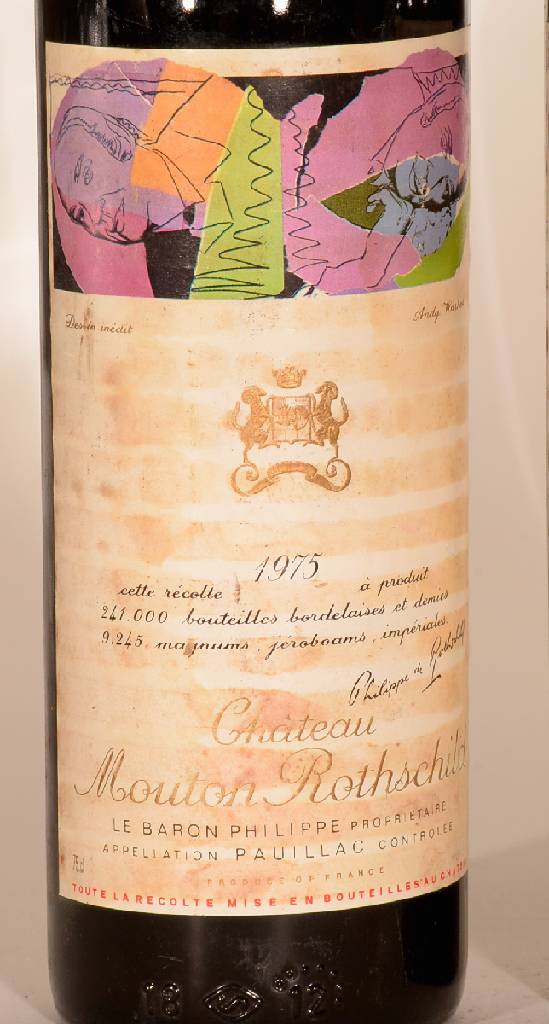 Dessin inédit
Andy Warhol
1975
cette récolte à produit
241.000 bouteilles bordelaises et demies
9.245 magnums, jéroboams, impériales.
Philippe de Rothschild
Château
Mouton Rothschild
LE BARON PHILIPPE PROPRIÉTAIRE
APPELLATION PAUILLAC CONTRÔLÉE
75cl
PRODUCE OF FRANCE
TOUTE LA RÉCOLTE MISE EN BOUTEILLES AU CHAT
18 12